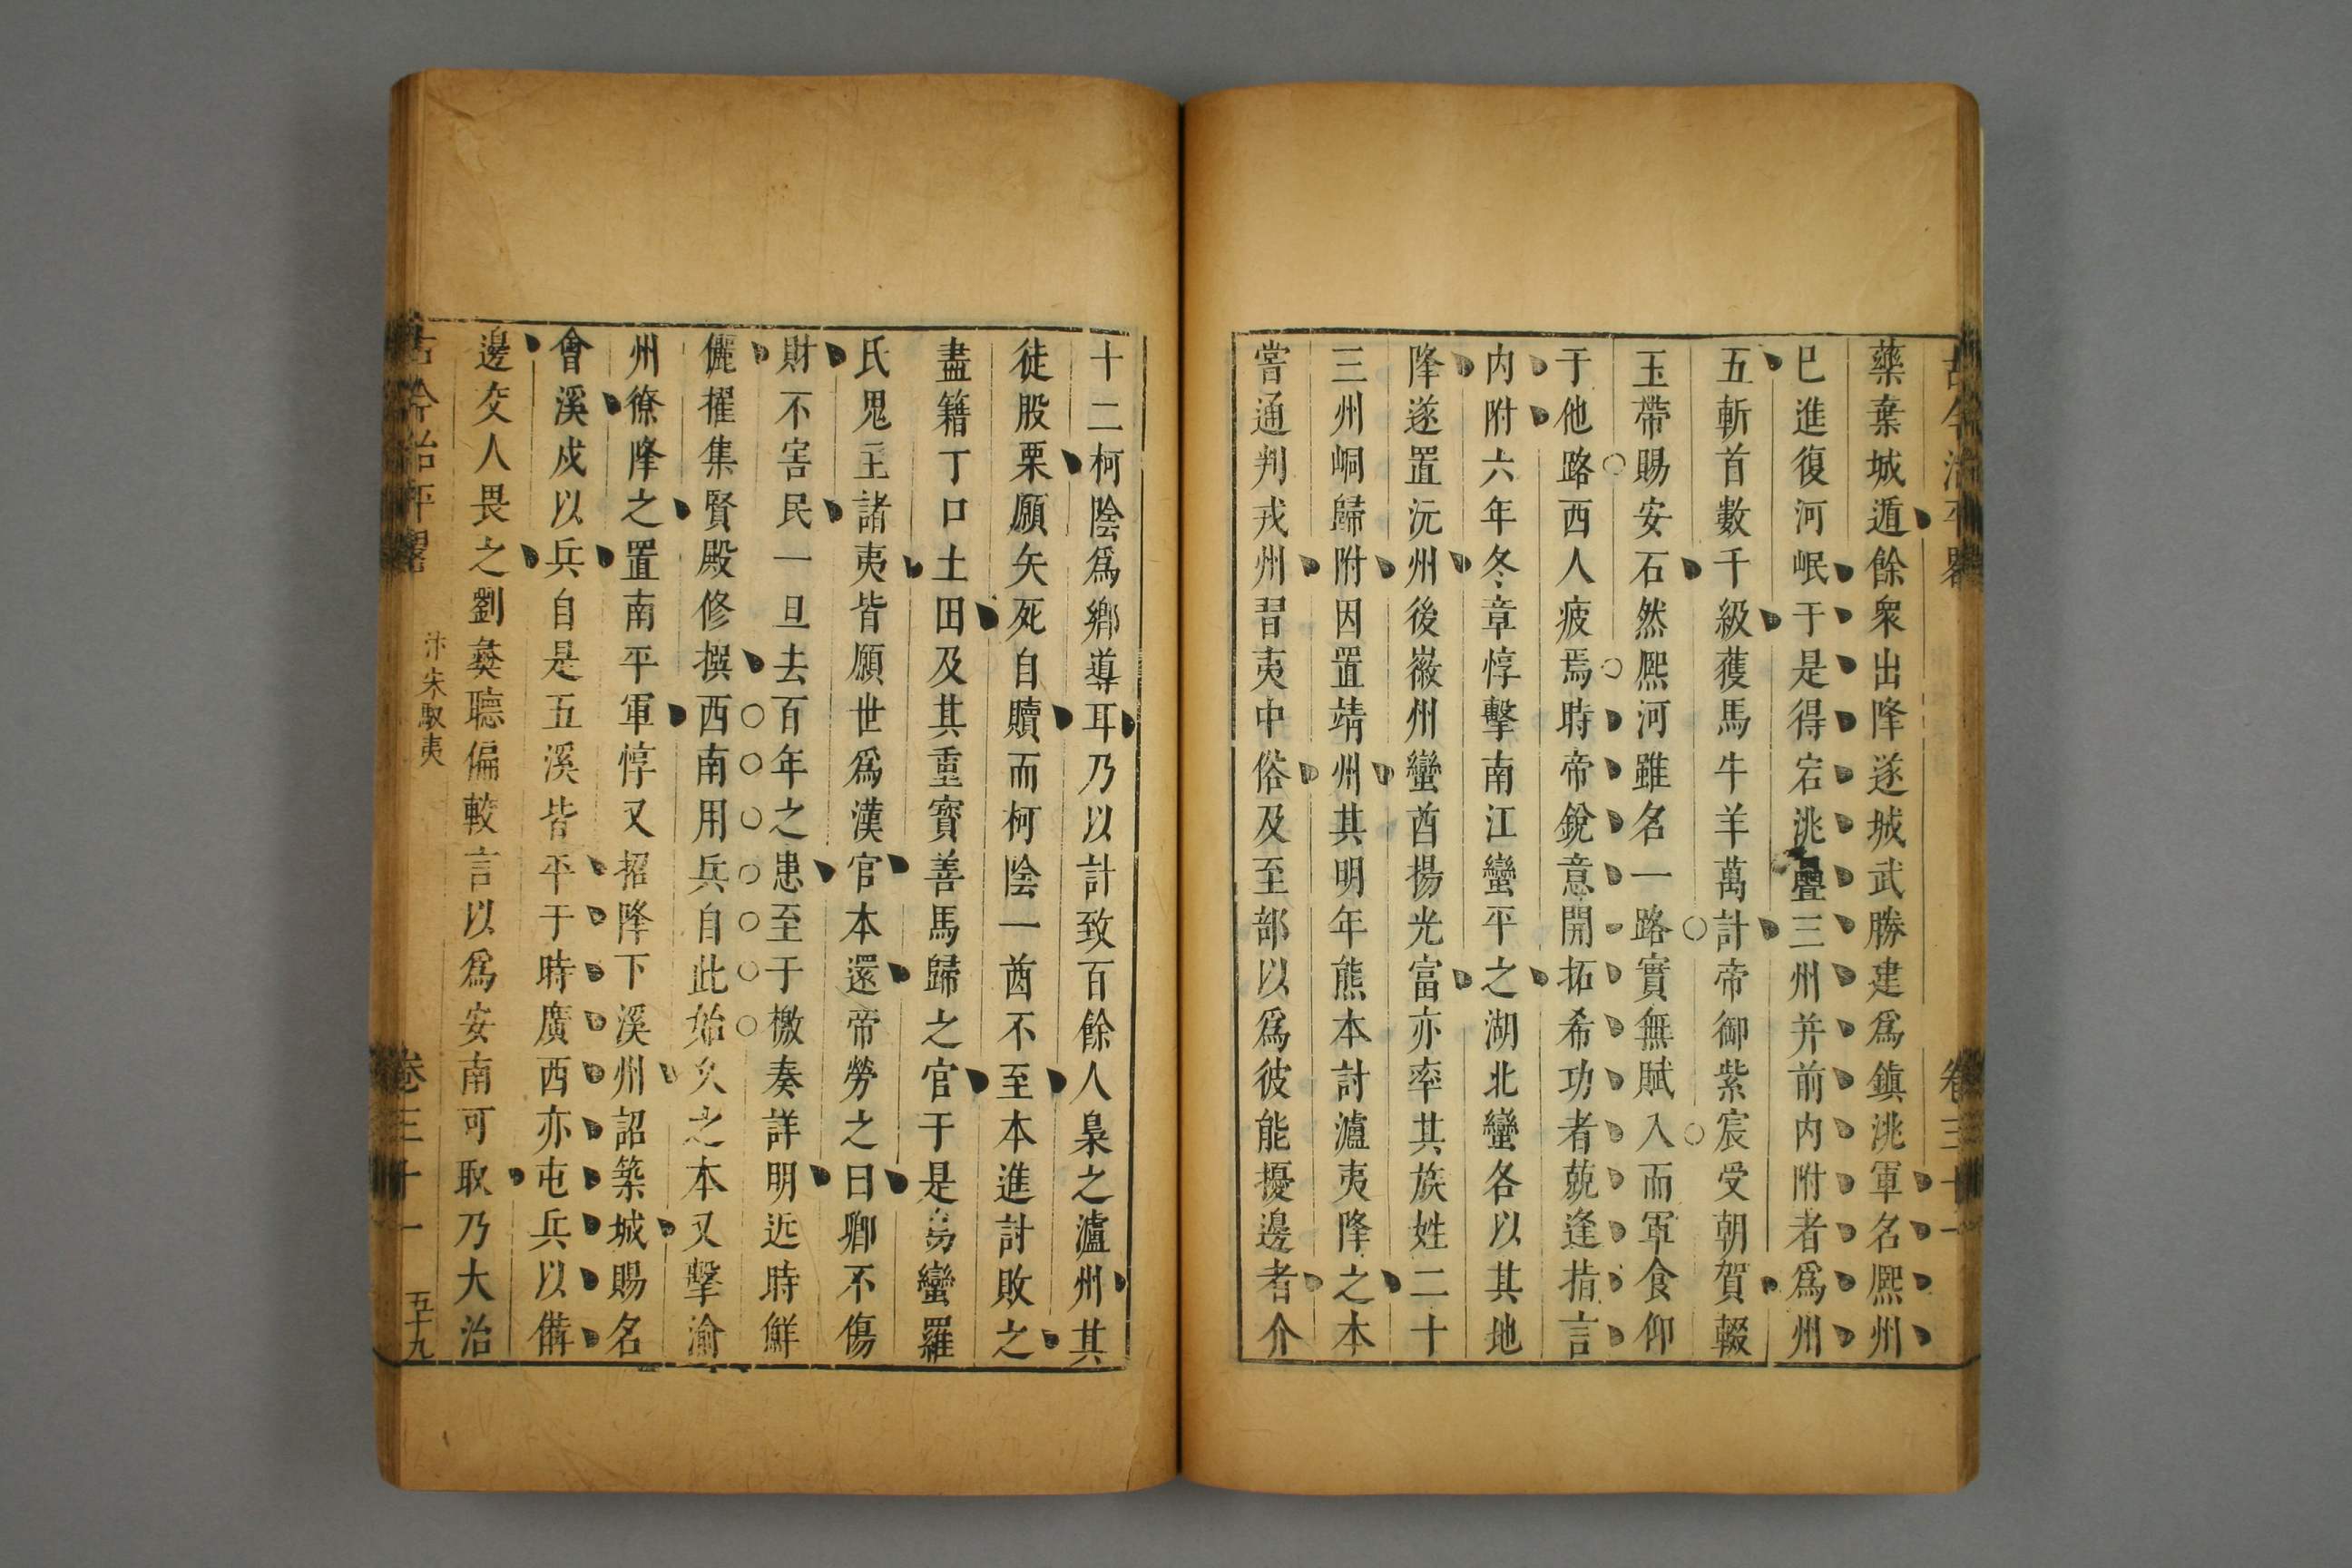 古今治平畧 卷三十一
藥棄城遁餘衆出降遂城武勝建爲鎮洮軍名熈州
巳進復河岷于是得宕洮疊三州并前内附者爲州
五斬首數千級獲馬牛羊萬計帝御紫宸受朝賀輟
玉帶賜安石然熈河雖名一路實無賦入而軍食仰
于他路西人疲焉時帝銳意開拓希功者兢逢指言
内附六年冬章惇擊南江蠻平之湖北蠻各以其地
降遂置沅州後㣲州蠻酋揚光富亦率其族姓二十
三州峒歸附因置靖州其明年熊本討瀘夷降之本
嘗通判戎州習夷中俗及至部以爲彼能擾邊者介
十二柯陰爲鄉導耳乃以計致百餘人梟之瀘州其
徒股栗願矢死自贖而柯陰一酋不至本進討敗之
盡籍丁口土田及其重寳善馬歸之官于是烏蠻羅
氏鬼主諸夷皆願世爲漢官本還帝勞之曰卿不傷
財不害民一旦去百年之患至于檄奏詳明近時鮮
儷擢集賢殿修撰西南用兵自此始久之本又擊渝
州獠降之置南平軍惇又招降下溪州詔築城賜名
會溪戍以兵自是五溪皆平于時廣西亦屯兵以備
邊交人畏之劉彞聽偏較言以爲安南可取乃大治
古今治平畧 汴宋馭夷 卷三十一 五十九